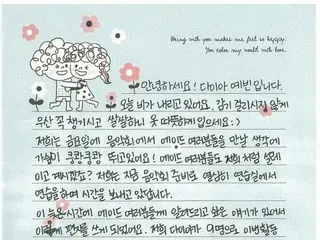 Being with you makes me feel so happy.
You color my world with love.
안녕하세요! 다이아 예빈입니다.
오늘 비가 내리고 있어요. 감기 걸리시지 않게
우산 꼭 챙기시고 쌀쌀하니 옷 따뜻하게 입으세요:)
저희는 금요일에 음악회에서 에이드 여러분들을 만날 생각에
가슴이 쿵쾅쿵쾅 뛰고있어요! 에이드 여러분들도 저희 처럼 설레
이고 계시겠죠? 저희는 지금 음악회 준비로 열심히 연습실에서
연습을하며 시간을 보내고 있답니다.
이 늦은시간에 에이드 여러분들께 알려드리고 싶은 얘기가 있어서
이렇게 편지를 쓰게 되었어요. 저희 다이아가 9명으로 이번활동